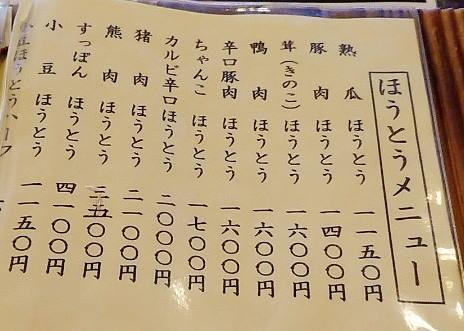 ほうとうメニュー
熟瓜ほうとう 一一五〇円
豚肉ほうとう 一四〇〇円
茸(きのこ)ほうとう 一六〇〇円
鴨肉ほうとう 一六〇〇円
辛口豚肉ほうとう 一六〇〇円
ちゃんこほうとう 一七〇〇円
カルビ辛口ほうとう 二〇〇〇円
猪肉ほうとう 二一〇〇円
熊肉ほうとう 三五〇〇円
すっぽんほうとう 四一〇〇円
小豆ほうとう 一一五〇円
小豆ほうとうハーフ